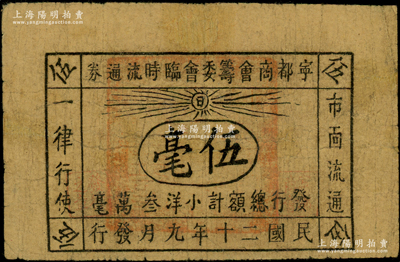 上海陽明拍賣
www.ymauction.com
寧都商會籌委會臨時流通券
伍
令
市面流通
一律行使
日
伍毫
發行總額計小洋叁萬毫
民國二十年九月發行